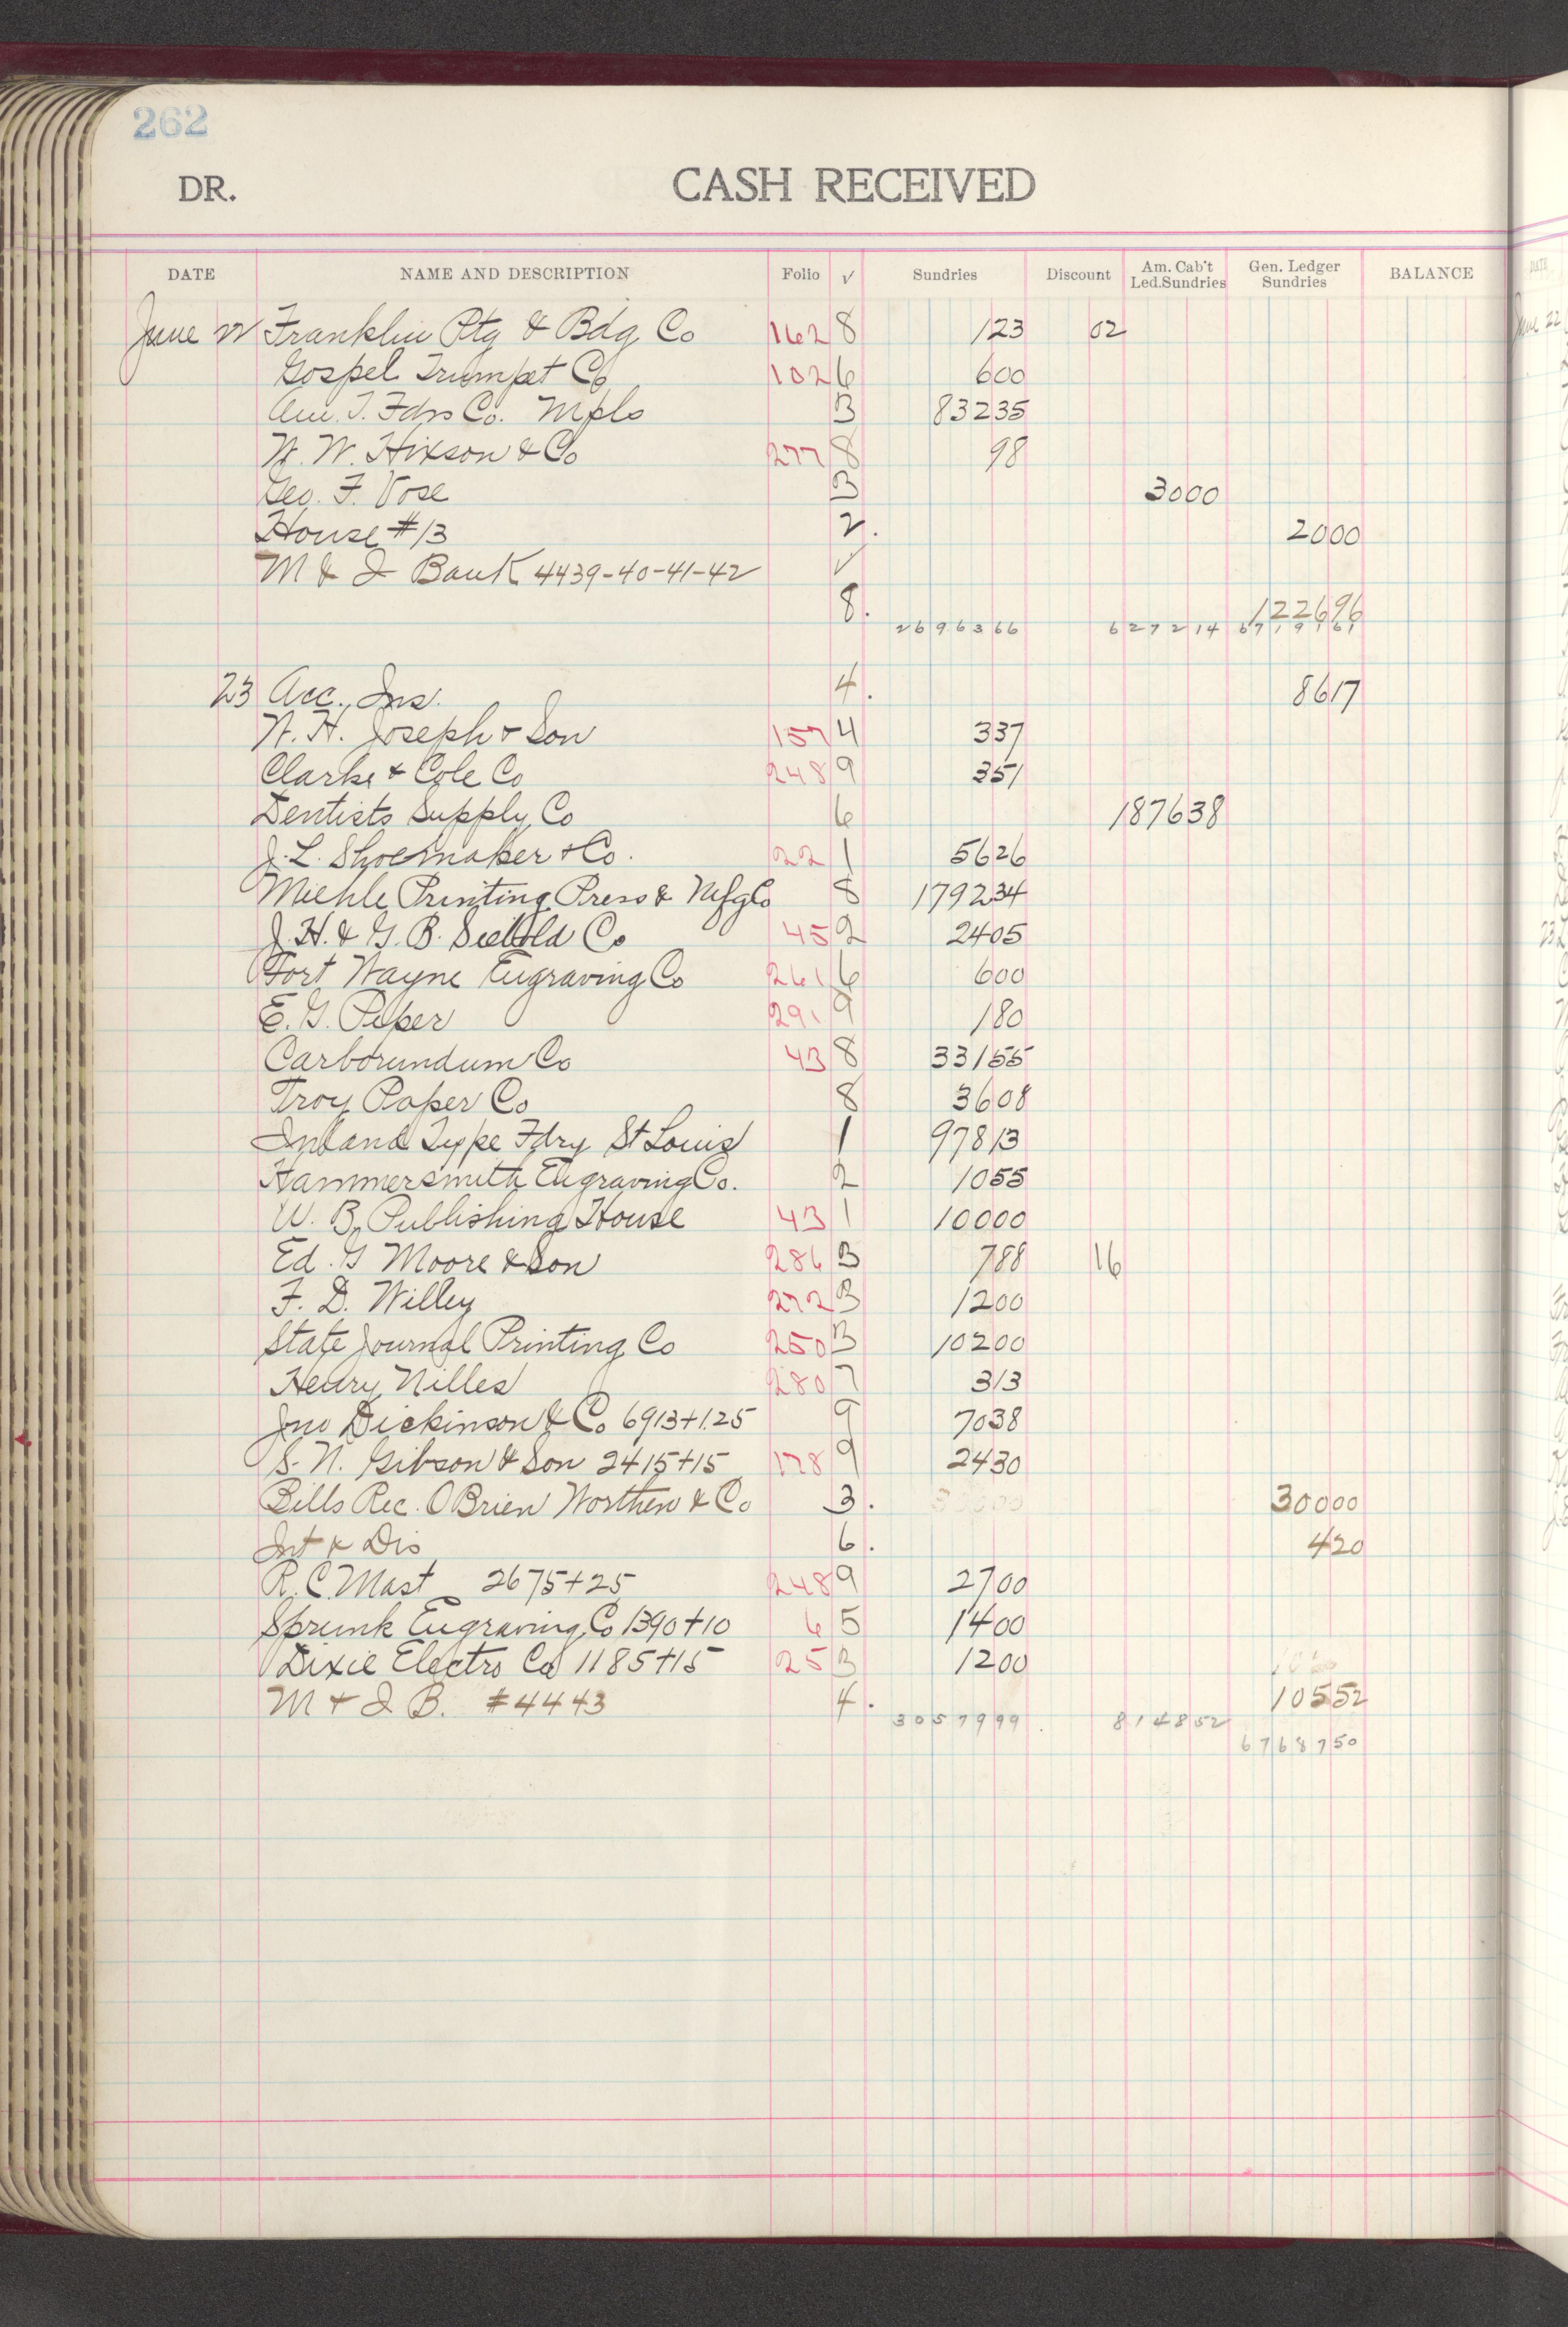 262
DR. CASH RECEIVED
DATE NAME AND DESCRIPTION Folio √ Sundries Discount Am. Cab't Led.Sundries Gen. Ledger Sundries BALANCE
June 22 Franklin Ptg & Bdg Co 162 8 123 02
Gospel Trumpet Co 102 6 600
Am. T. Fdrs Co. Mpls 3 83235
W. W. Hixson & Co 277 8 98
Geo. F. Vose 3 3000
House #13 2. 2000
M & I Bank 4439-40-41-42 √
8. 122696
2696366 627214 6719161
23 Acc. Ins. 4. 8617
W. H. Joseph & Son 157 4 337
Clarke & Cole Co 248 9 351
Dentists Supply Co 6 187638
J. L. Shoemaker & Co. 22 1 5626
Miehle Printing Press & Mfg Co 8 179234
J. H. & G. B. Siebold Co 45 2 2405
Fort Wayne Engraving Co 261 6 600
E. G. Peper 291 9 180
Carborundum Co 43 8 33155
Troy Paper Co 8 3608
Inland Type Fdry St Louis 1 97813
Hammersmith Engraving Co. 2 1055
U. B. Publishing House 43 1 10000
Ed. G Moore & Son 286 3 788 16
F. D. Willey 272 3 1200
State Journal Printing Co 250 3 10200
Henry Nilles 280 7 313
Jno Dickinson & Co 6913+1.25 9 7038
S. N. Gibson & Son 2415+15 178 9 2430
Bills Rec. OBrien Worthen & Co 3. 30000
Int & Dis 6. 420
R. C. Mast 2675+25 248 9 2700
Sprunk Engraving Co 1390+10 6 5 1400
Dixie Electro Co 1185+15 25 3 1200
M & I B. #4443 4. 10552
3057999 814852
6768750